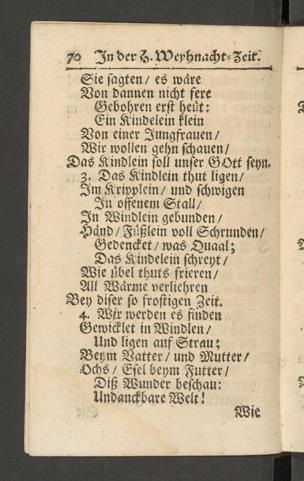 70 In der H. Weyhnacht-Zeit.
Sie sagten / es wäre
Von dannen nicht fere
Gebohren erst heut:
Ein Kindelein klein
Von einer Jungfrauen /
Wir wollen gehn schauen /
Das Kindlein soll unser GOtt seyn.
3. Das Kindlein thut ligen /
Im Kripplein / und schwigen
In offenem Stall /
In Windlein gebunden /
Händ / Füßlein voll Schrunden /
Gedencket / was Quaal;
Das Kindelein schreyt /
Wie übel thuts frieren /
All Wärme verliehren
Bey diser so frostigen Zeit.
4. Wir werden es finden
Gewicklet in Windlen /
Und ligen auf Strau;
Beym Vatter / und Mutter /
Ochs / Esel beym Futter /
Diß Wunder beschau:
Undanckbare Welt!
Wie